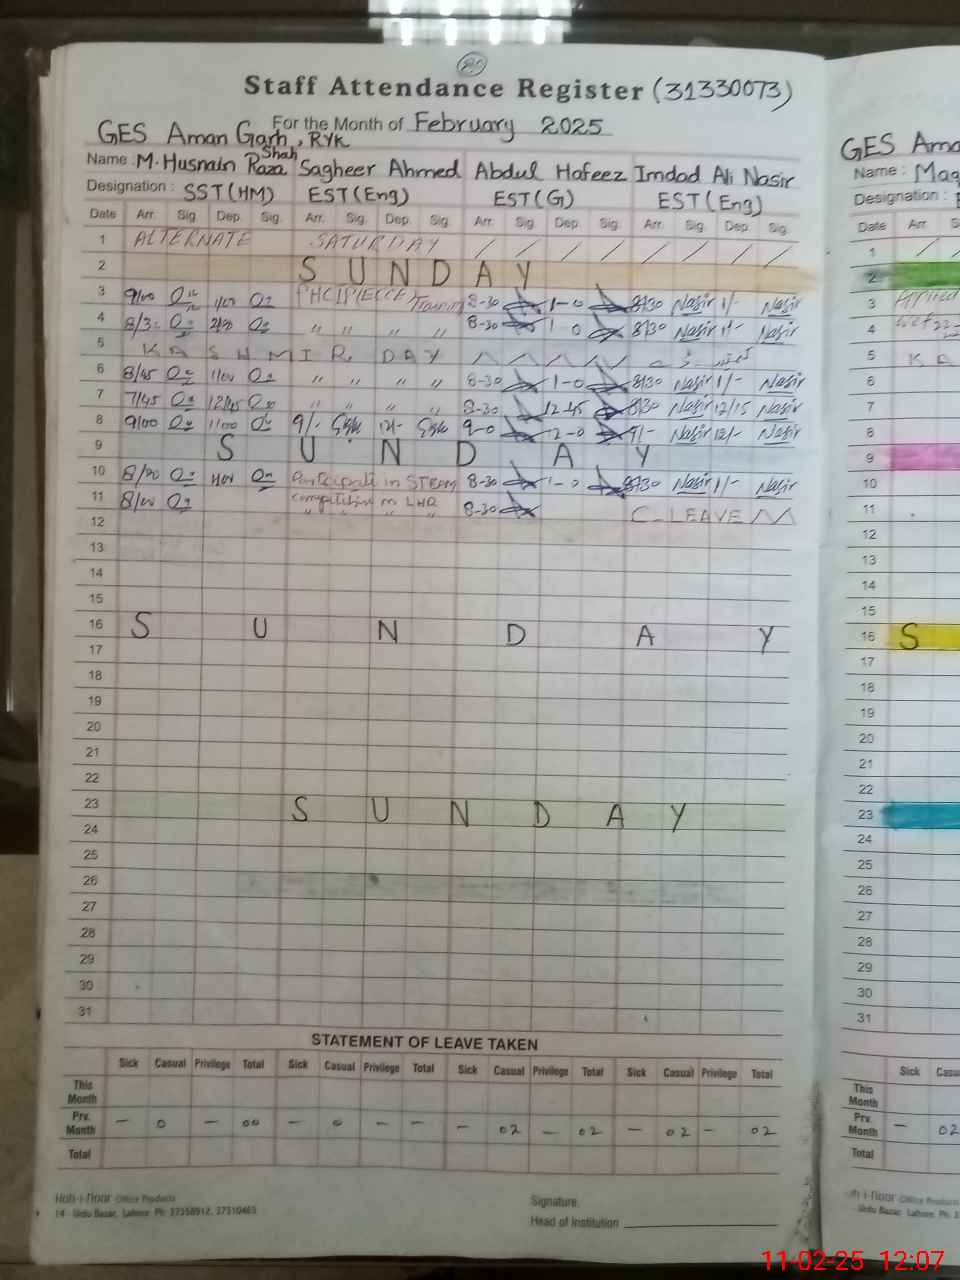 Staff Attendance Register (31330073)
For the Month of February 2025
GES Aman Garh, RYK
Name: M. Husnain Raza Shah Sagheer Ahmed Abdul Hafeez Imdad Ali Nasir
Designation: SST(HM) EST(Eng) EST(G) EST(Eng)
Date Arr. Sig. Dep. Sig. Arr. Sig. Dep. Sig. Arr. Sig. Dep. Sig. Arr. Sig. Dep. Sig.
1 ALTERNATE SATURDAY / / / / / / / / /
2 S U N D A Y
3 9/00 Training 8-30 1-0 8/30 Nasir 1/- Nasir
4 8/3- " " " " 8-30 1-0 8/30 Nasir 1/- Nasir
5 KASHMIR DAY
6 8/45 11/00 " " " " 8-30 1-0 8/30 Nasir 1/- Nasir
7 7/45 12/45 " " " " 8-30 12-45 8/30 Nasir 12/15 Nasir
8 9/00 11/00 9/- 12/- 9-0 12-0 9/- Nasir 12/- Nasir
9 S U N D A Y
10 8/20 Participate in STEAM 8-30 1-0 8/30 Nasir 1/- Nasir
11 8/00 competition in LHR 8-30 C-LEAVE
" " " "
12
13
14
15
16 S U N D A Y
17
18
19
20
21
22
23 S U N D A Y
24
25
26
27
28
29
30
31
STATEMENT OF LEAVE TAKEN
Sick Casual Privilege Total Sick Casual Privilege Total Sick Casual Privilege Total Sick Casual Privilege Total
This Month
Prv. Month - 0 - 00 - 0 - - - 02 - 02 - 02 - 02
Total
Office Products
14 - Urdu Bazar, Lahore. Ph: 37358912, 37310465
Signature.
Head of Institution
GES Ama
Name: Maq
Designation:
Date Arr. S
1 / /
2
3
4
5 K A
6
7
8
9
10
11
12
13
14
15
16 S
17
18
19
20
21
22
23
24
25
26
27
28
29
30
31
Sick Casu
This Month
Prv. Month - 02
Total
Office Products
- Urdu Bazar, Lahore. Ph: 3
11-02-25 12:07